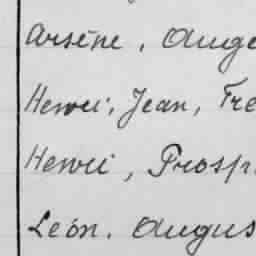 Arsène, Auge
Henri, Jean, Fre
Henri, Prosp
Léon. Augus